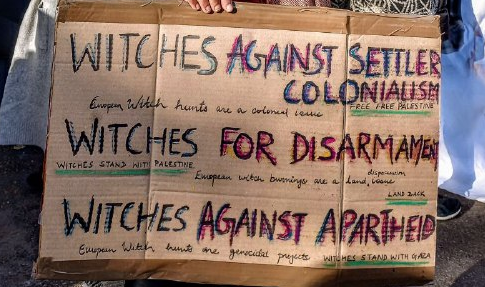 WITCHES AGAINST SETTLER
COLONIALISM
European Witch hunts are a colonial issue
FREE FREE PALESTINE
WITCHES FOR DISARMAMENT
WITCHES STAND WITH PALESTINE
dispossession
European witch burnings are a land issue
LAND BACK
WITCHES AGAINST APARTHEID
European Witch hunts are genocidal projects
WITCHES STAND WITH GAZA